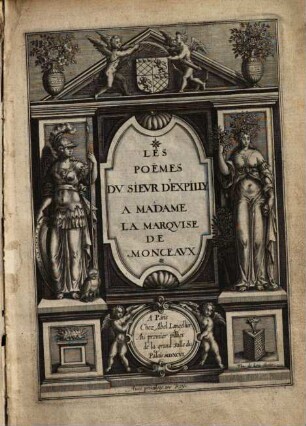 LES
POËMES
DV SIEVR D'EXPILLY
A MADAME
LA MARQVISE
DE
MONCEAVX
A Paris
Chez Abel Langellier
Au premier pillier
de la grand Salle du
Palais MDXCVI